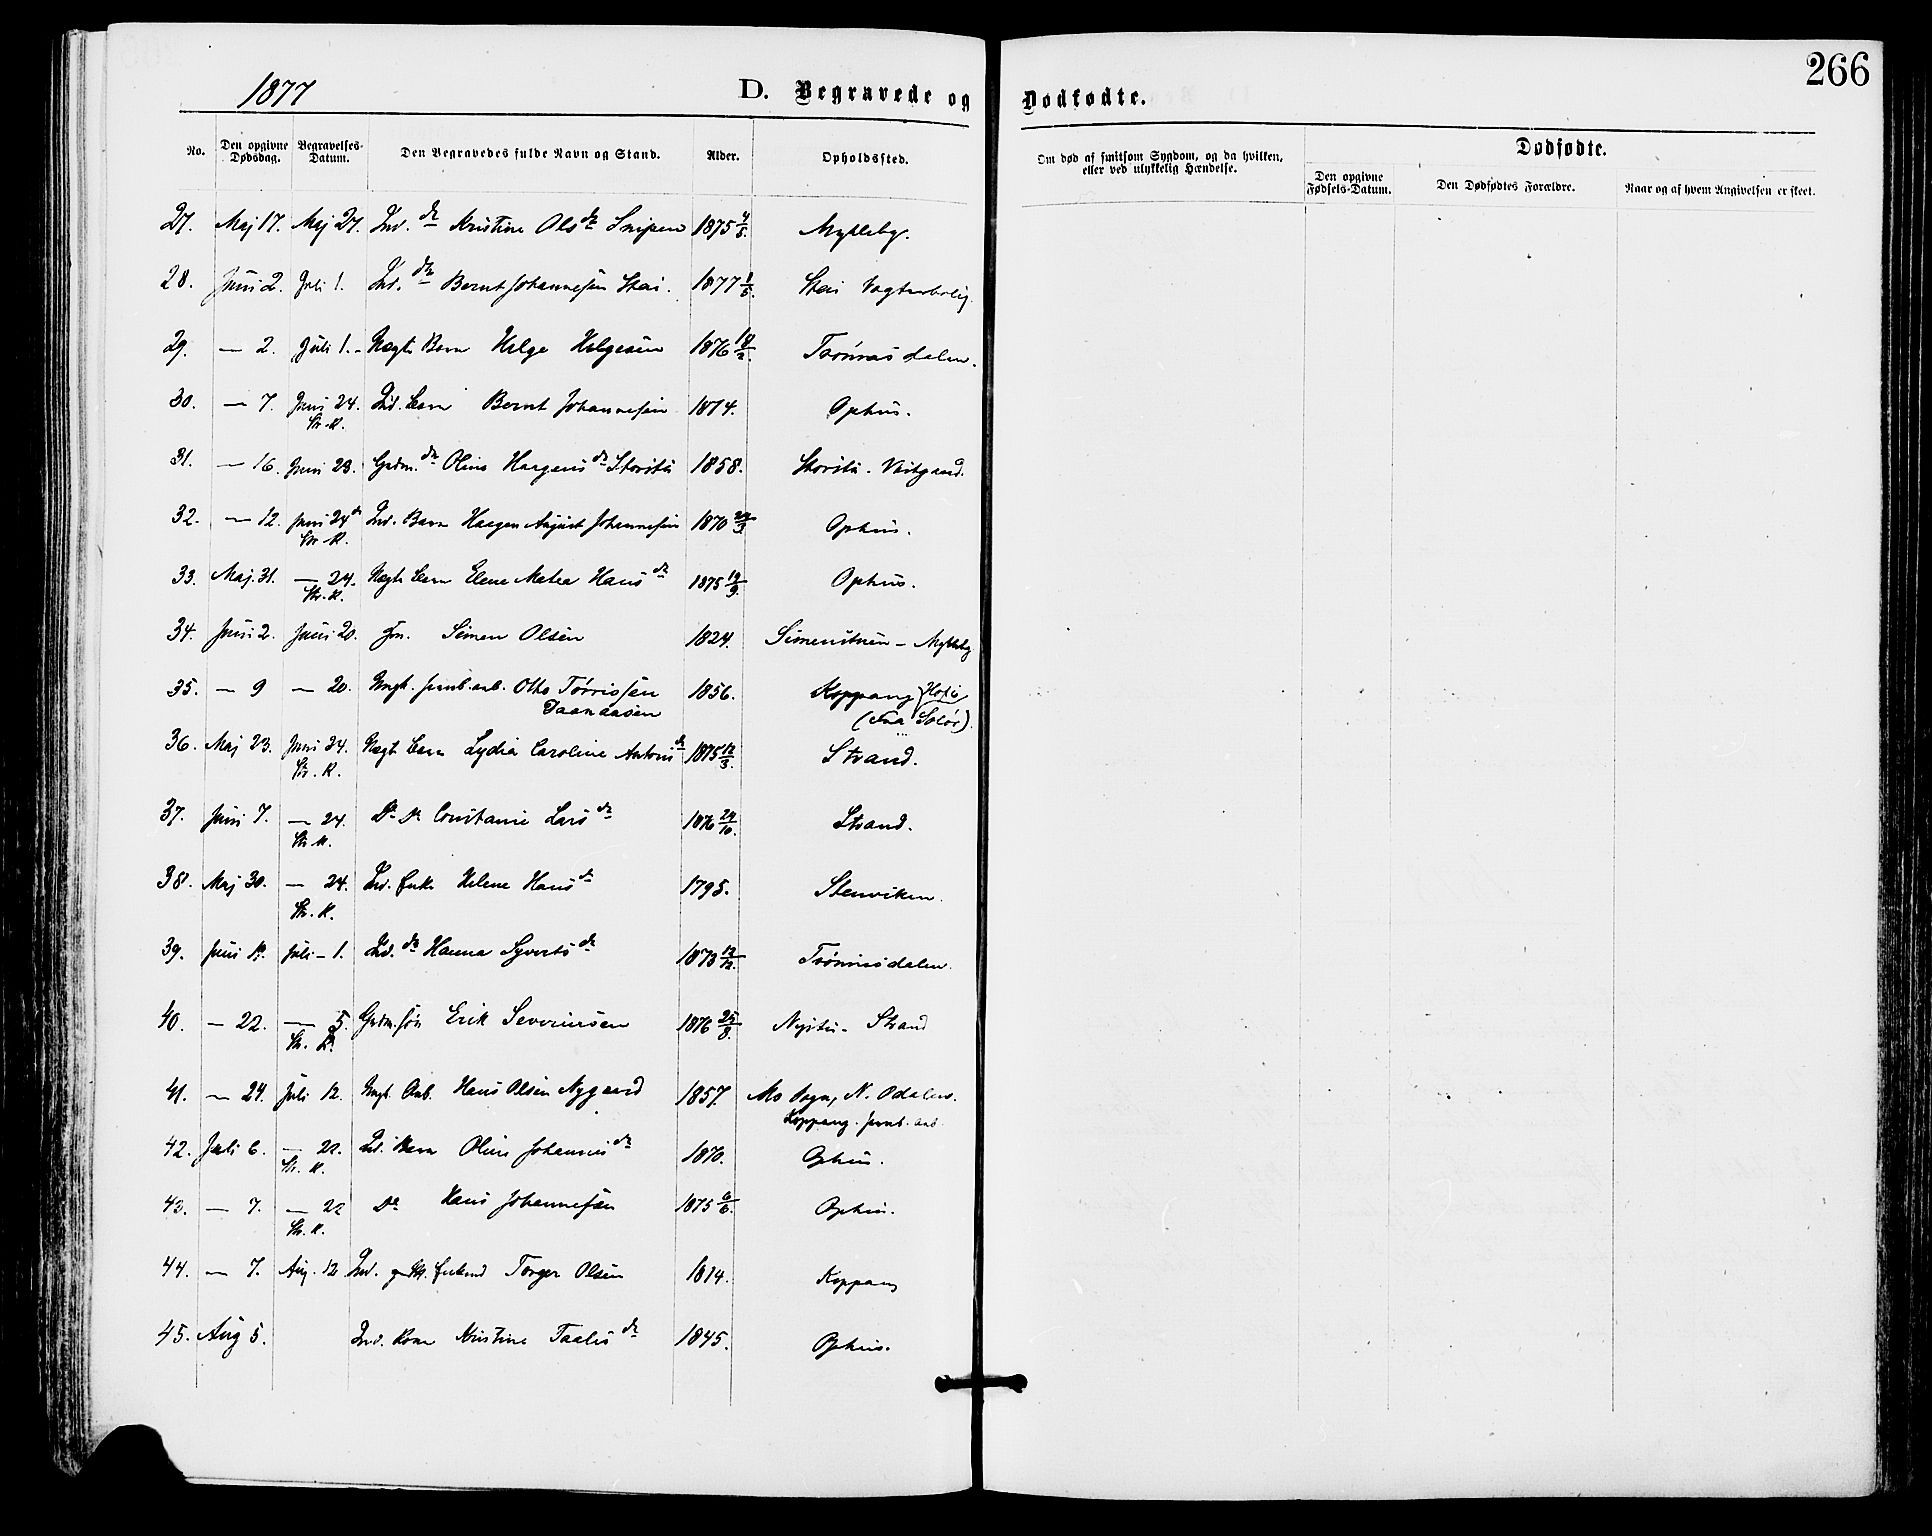 266
1877
D. Begravede og Dødfødte.
No. Den opgivne Dødsdag. Begravelses-Datum. Den Begravedes fulde Navn og Stand. Alder. Opholdssted. Om død af smitsom Sygdom, og da hvilken, eller ved ulykkelig Hændelse. Dødfødte. Den opgivne Fødsels-Datum. Den Dødfødtes Forældre. Naar og af hvem Angivelsen er skeet.
27. Maj 17. Maj 27. Ind. dr Kristine Olsdr Snipen 1875 4/8. Mykleby.
28. Juni 2. Juli 1. Ind. dr Bernt Johannesen Stai. 1877 1/5. Stai Vogterbolig.
29. — 2. Juli 1. Uægte Barn Helge Helgesen 1876 18/2. Trønnesdalen.
30. — 7. Juni 24. Ind. Barn Bernt Johannesen 1874. Ophus.
St. K.
31. — 16. Juni 23. Grdm. dr Oline Haagensdr Storstu 1858. Storstu - Vestgaard.
32. — 12. Juni 24de Ind. Barn Haagen August Johannesen 1870 Ophus.
St. K.
33. Maj 31. — 24. Uægte Barn Elene Matea Hansdr 1875 19/9. Ophus.
St. K.
34. Juni 2. Juni 20. Fm. Simen Olsen 1824. Simenstuen - Mykleby
35. — 9 — 20. Ungk. Jernb.arb. Otto Tørrissen 1856. Koppang
Taanaasen (fra Solør).
36. Maj 23. Juni 24. Uægte Barn Lydia Caroline Antonsdr 1875 12/3. Strand.
St. K.
37. Juni 7. — 24. Do Do Constanse Larsdr 1876 29/10. Strand.
St. K.
38. Maj 30. — 24. Ind. Enke Helene Hansdr 1795. Stenviken.
St. K.
39. Juni 19. Juli - 1. Ind. dr Hanna Syvertsdr 1873 12/12. Trønnesdalen.
40. — 22. — 5. Grdm. søn Erik Severinsen 1876 25/8. Nystu - Strand
St. K.
41. — 24. Juli 12. Ungk. Arb. Hans Olsen Nygaard 1857. Mo Sogn, N. Odalen.
Koppang. Jernb. arb.
42. Juli 6. — 22. Ind. Barn Oline Johannesdr 1870. Ophus.
St. K.
43. — 7. — 22 Do Hans Johannesen 1875 6/6. Ophus.
St. K.
44. — 7. Aug. 12 Ind. Enkemd Torger Olsen 1814. Koppang
45. Aug 5. Ind. Kone Kristine Taalesdr 1845. Ophus.